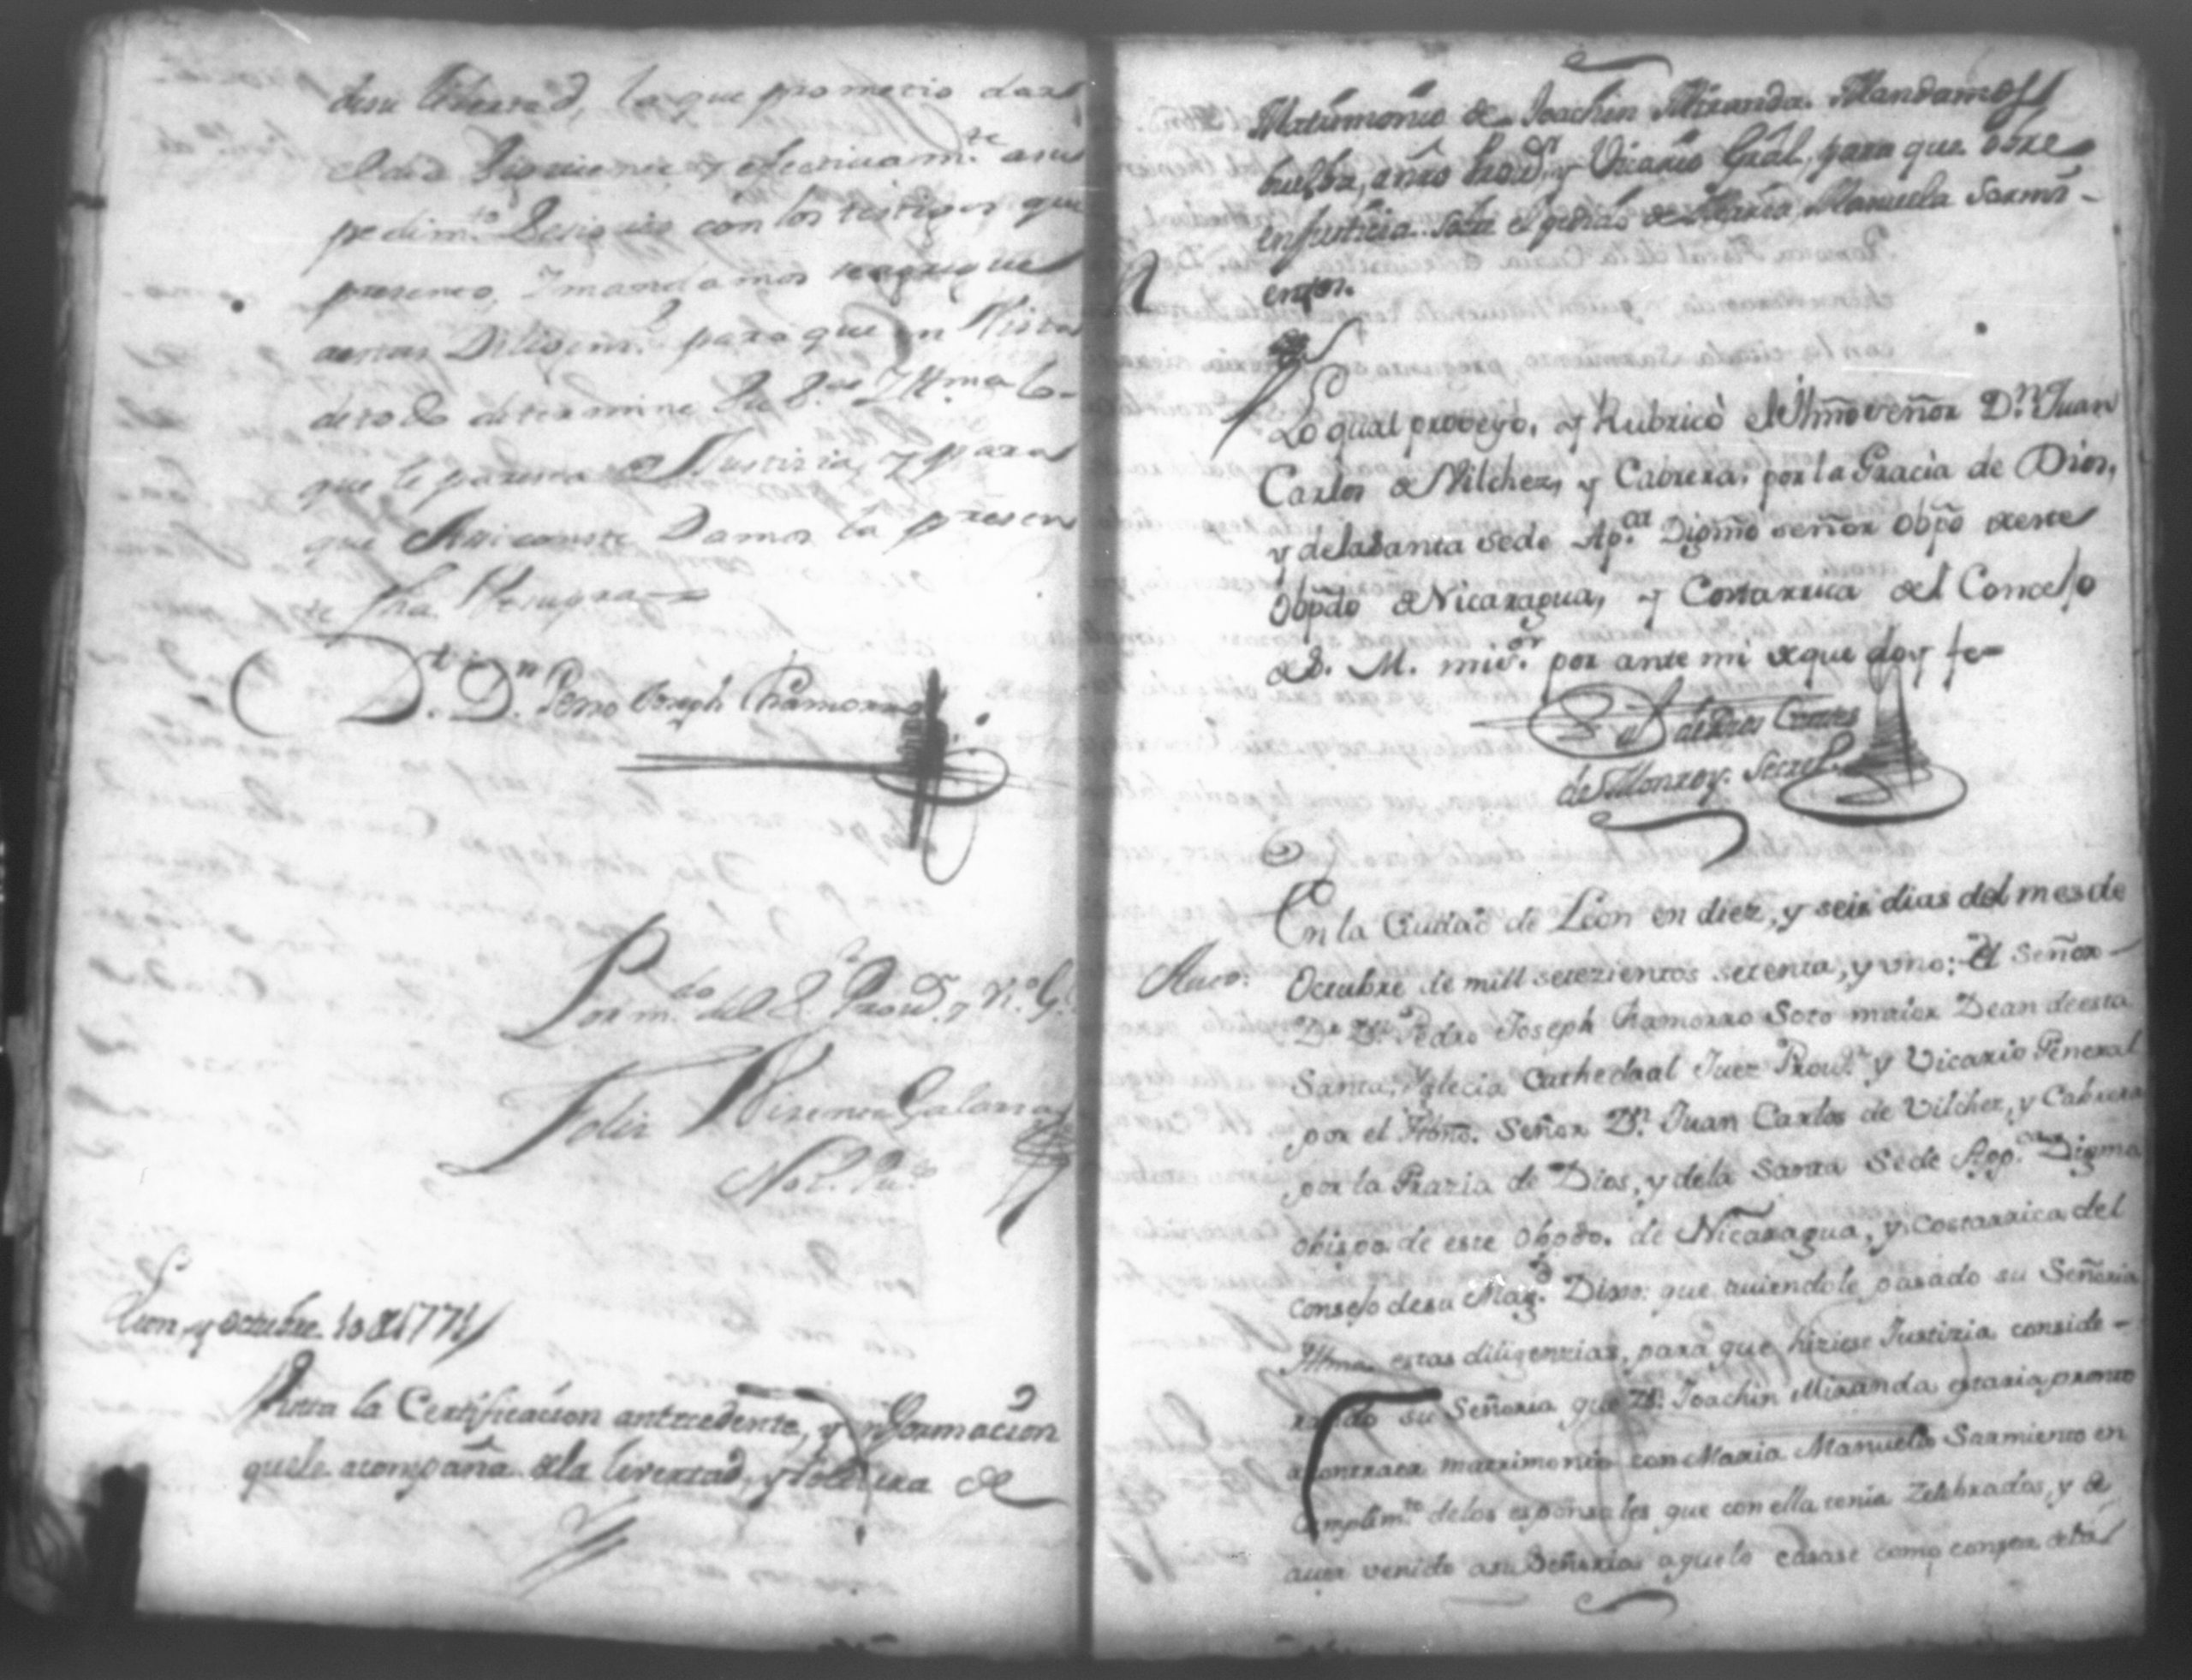 desu libertad, la que prometio dar
el dia siguiente y efectivam.te asu
pedim.to con los testigos que
presento, y mandamos se agregue
aestas Diligen.s para que en Vista
detodo determine Su S.ria Yll.ma lo
que le paresca de Justicia, y para
que Asi conste Damos la presen
te fha Vt supra
D.r D.n Pedro Joseph Chamorro
Por m.do del S.r Prov.r y V.o G.l
Felix
Not. Pu.co
Leon, y octubre 10 de 1771
Vista la Certificacion antecedente, y informacion
quele acompaña de la livertad, y solteria de
Matrimonio de Joachin Miranda. Mandamos
buelba, anro Prov.r y Vicario Grâl, para que obre
en justicia sobre el pedido de Maria Manuela Sarmi-
entos.
Lo qual proveyo, y Rubricò el Yllmo señor D.n Juan
Carlos de Vilchez, y Cabrera, por la Gracia de Dios,
y delaSanta Sede Ap.ca Digmo señor obpo deeste
obpdo de Nicaragua, y Costarrica del Concejo
de S. M. por ante mi de que doy fe=
de Monroy. Secret.
En la Ciudad de Leon en diez, y seis dias del mes de
Auto: Octubre de mill setezientos setenta, y uno: El Señor
D.r D.n Pedro Joseph Chamorro Soto maior Dean deesta
Santa Yglecia Cathedral Juez Prov.r y Vicario General
por el Yllmo. Señor D.n Juan Carlos de Vilchez, y Cabrera
por la Grazia de Dios, y dela Santa Sede App.ca Digmo
obispo de este Obpdo. de Nicaragua, y Costarrica del
consejo desu Mag.d Dixo: que aviendole pasado su Señoria
Yllma. estas diligenzias, para que hiziese Justizia conside-
rando su Señoria que D.n Joachin Miranda estaria pronto
a contraer matrimonio con Maria Manuela Sarmiento en
Cumplim.to delos esponsales que con ella tenia Zelebrados, y de
aver venido a su Señoria aquelo casase como consta delas